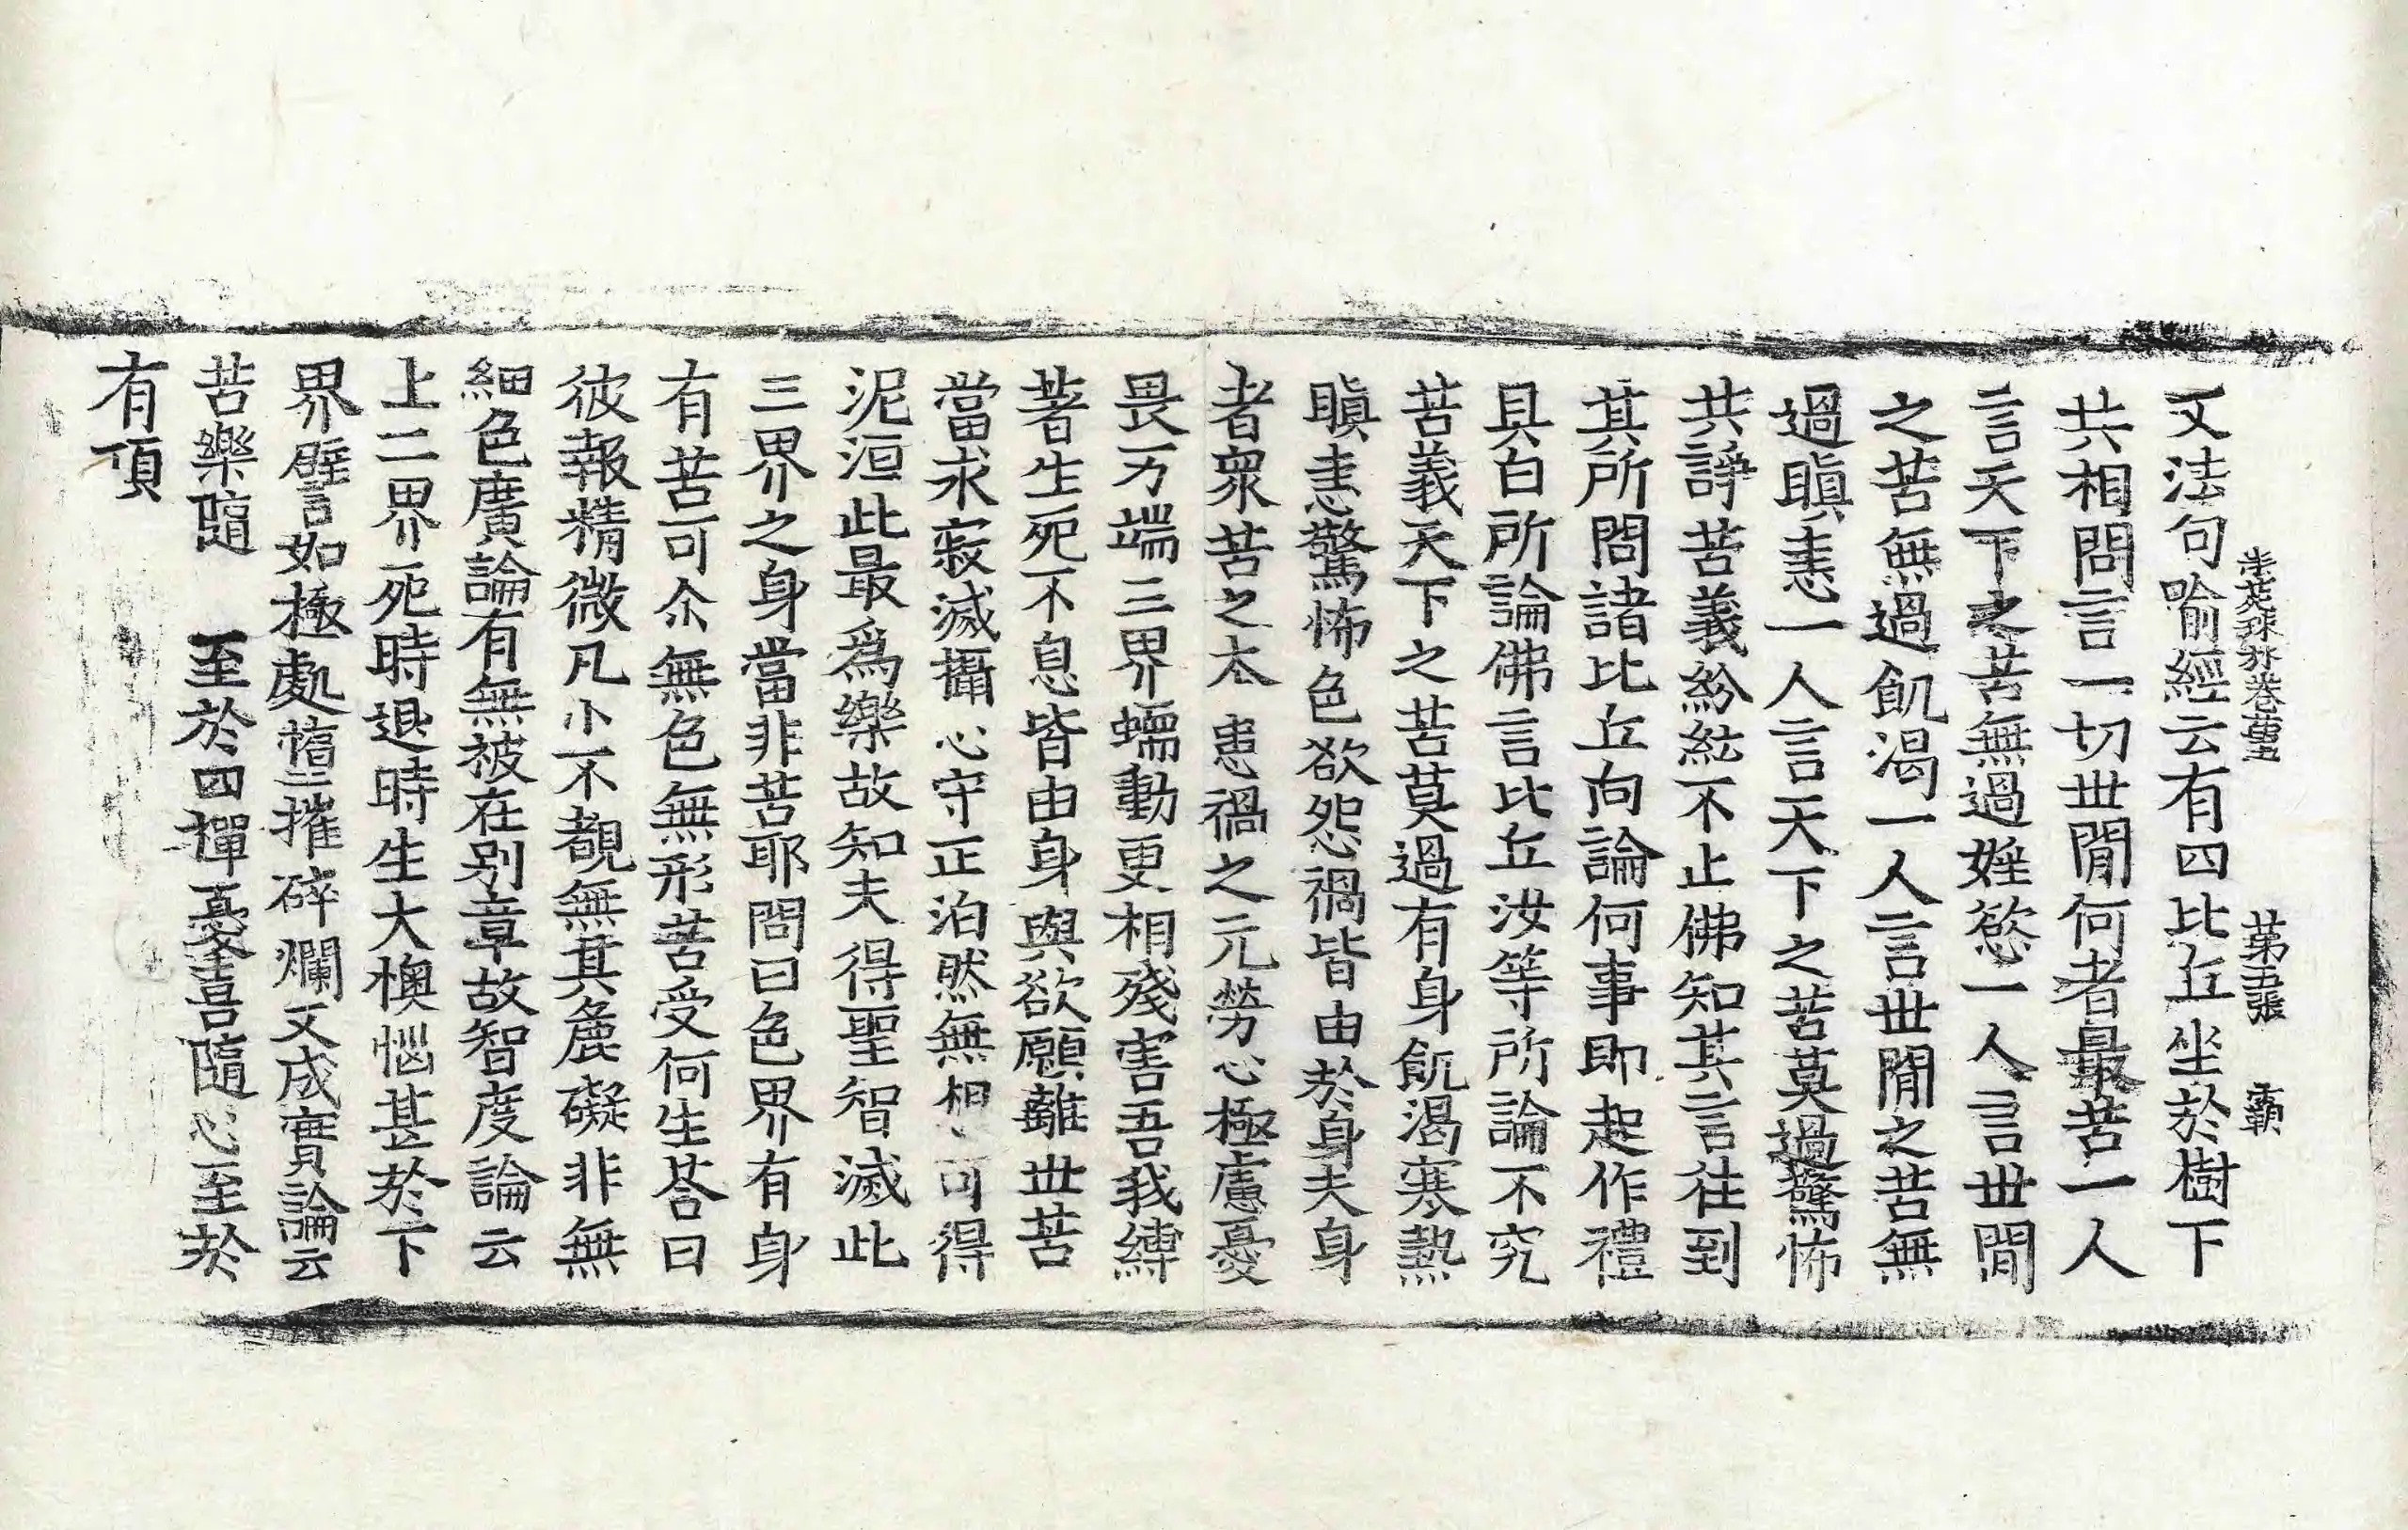 法苑珠林卷 第五張 霸
又法句喻經云有四比丘坐於樹下
共相問言一切世閒何者最苦一人
言天下之苦無過婬慾一人言世閒
之苦無過飢渴一人言世閒之苦無
過瞋恚一人言天下之苦莫過驚怖
共諍苦義紛紜不止佛知其言往到
其所問諸比丘向論何事即起作禮
具白所論佛言比丘汝等所論不究
苦義天下之苦莫過有身飢渴寒熱
瞋恚驚怖色欲怨禍皆由於身夫身
者衆苦之本患禍之元勞心極慮憂
畏万端三界蠕動更相殘害吾我縛
著生死不息皆由身與欲願離世苦
當求寂滅攝心守正泊然無想可得
泥洹此最爲樂故知夫得聖智滅此
三界之身當非苦耶問曰色界有身
有苦可尒無色無形苦受何生荅曰
彼報精微凡小不覩無其麁礙非無
細色廣論有無被在別章故智度論云
上二界死時退時生大懊惱甚於下
界譬如極處墮摧碎爛又成實論云
苦樂隨 至於四禪憂喜隨心至於
有頂